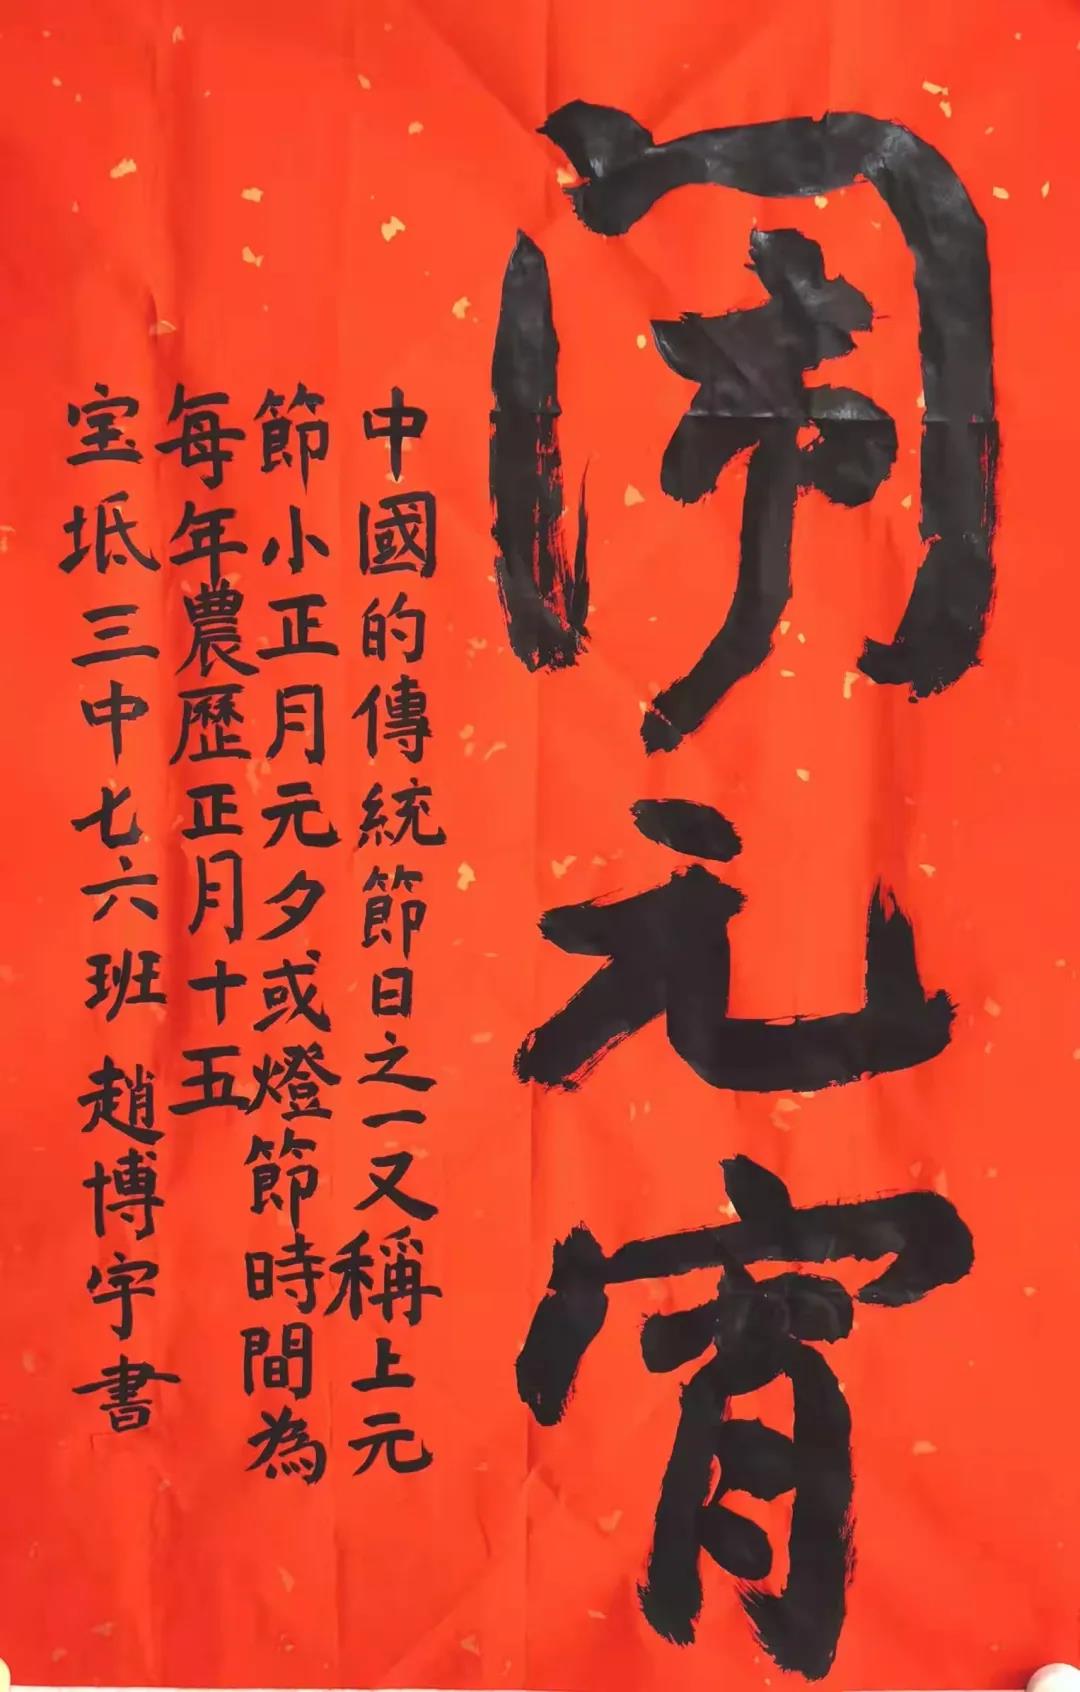 闹元宵
中國的傳統節日之一又稱上元
節小正月元夕或燈節時間為
每年農歷正月十五
宝坻三中七六班 趙博宇書